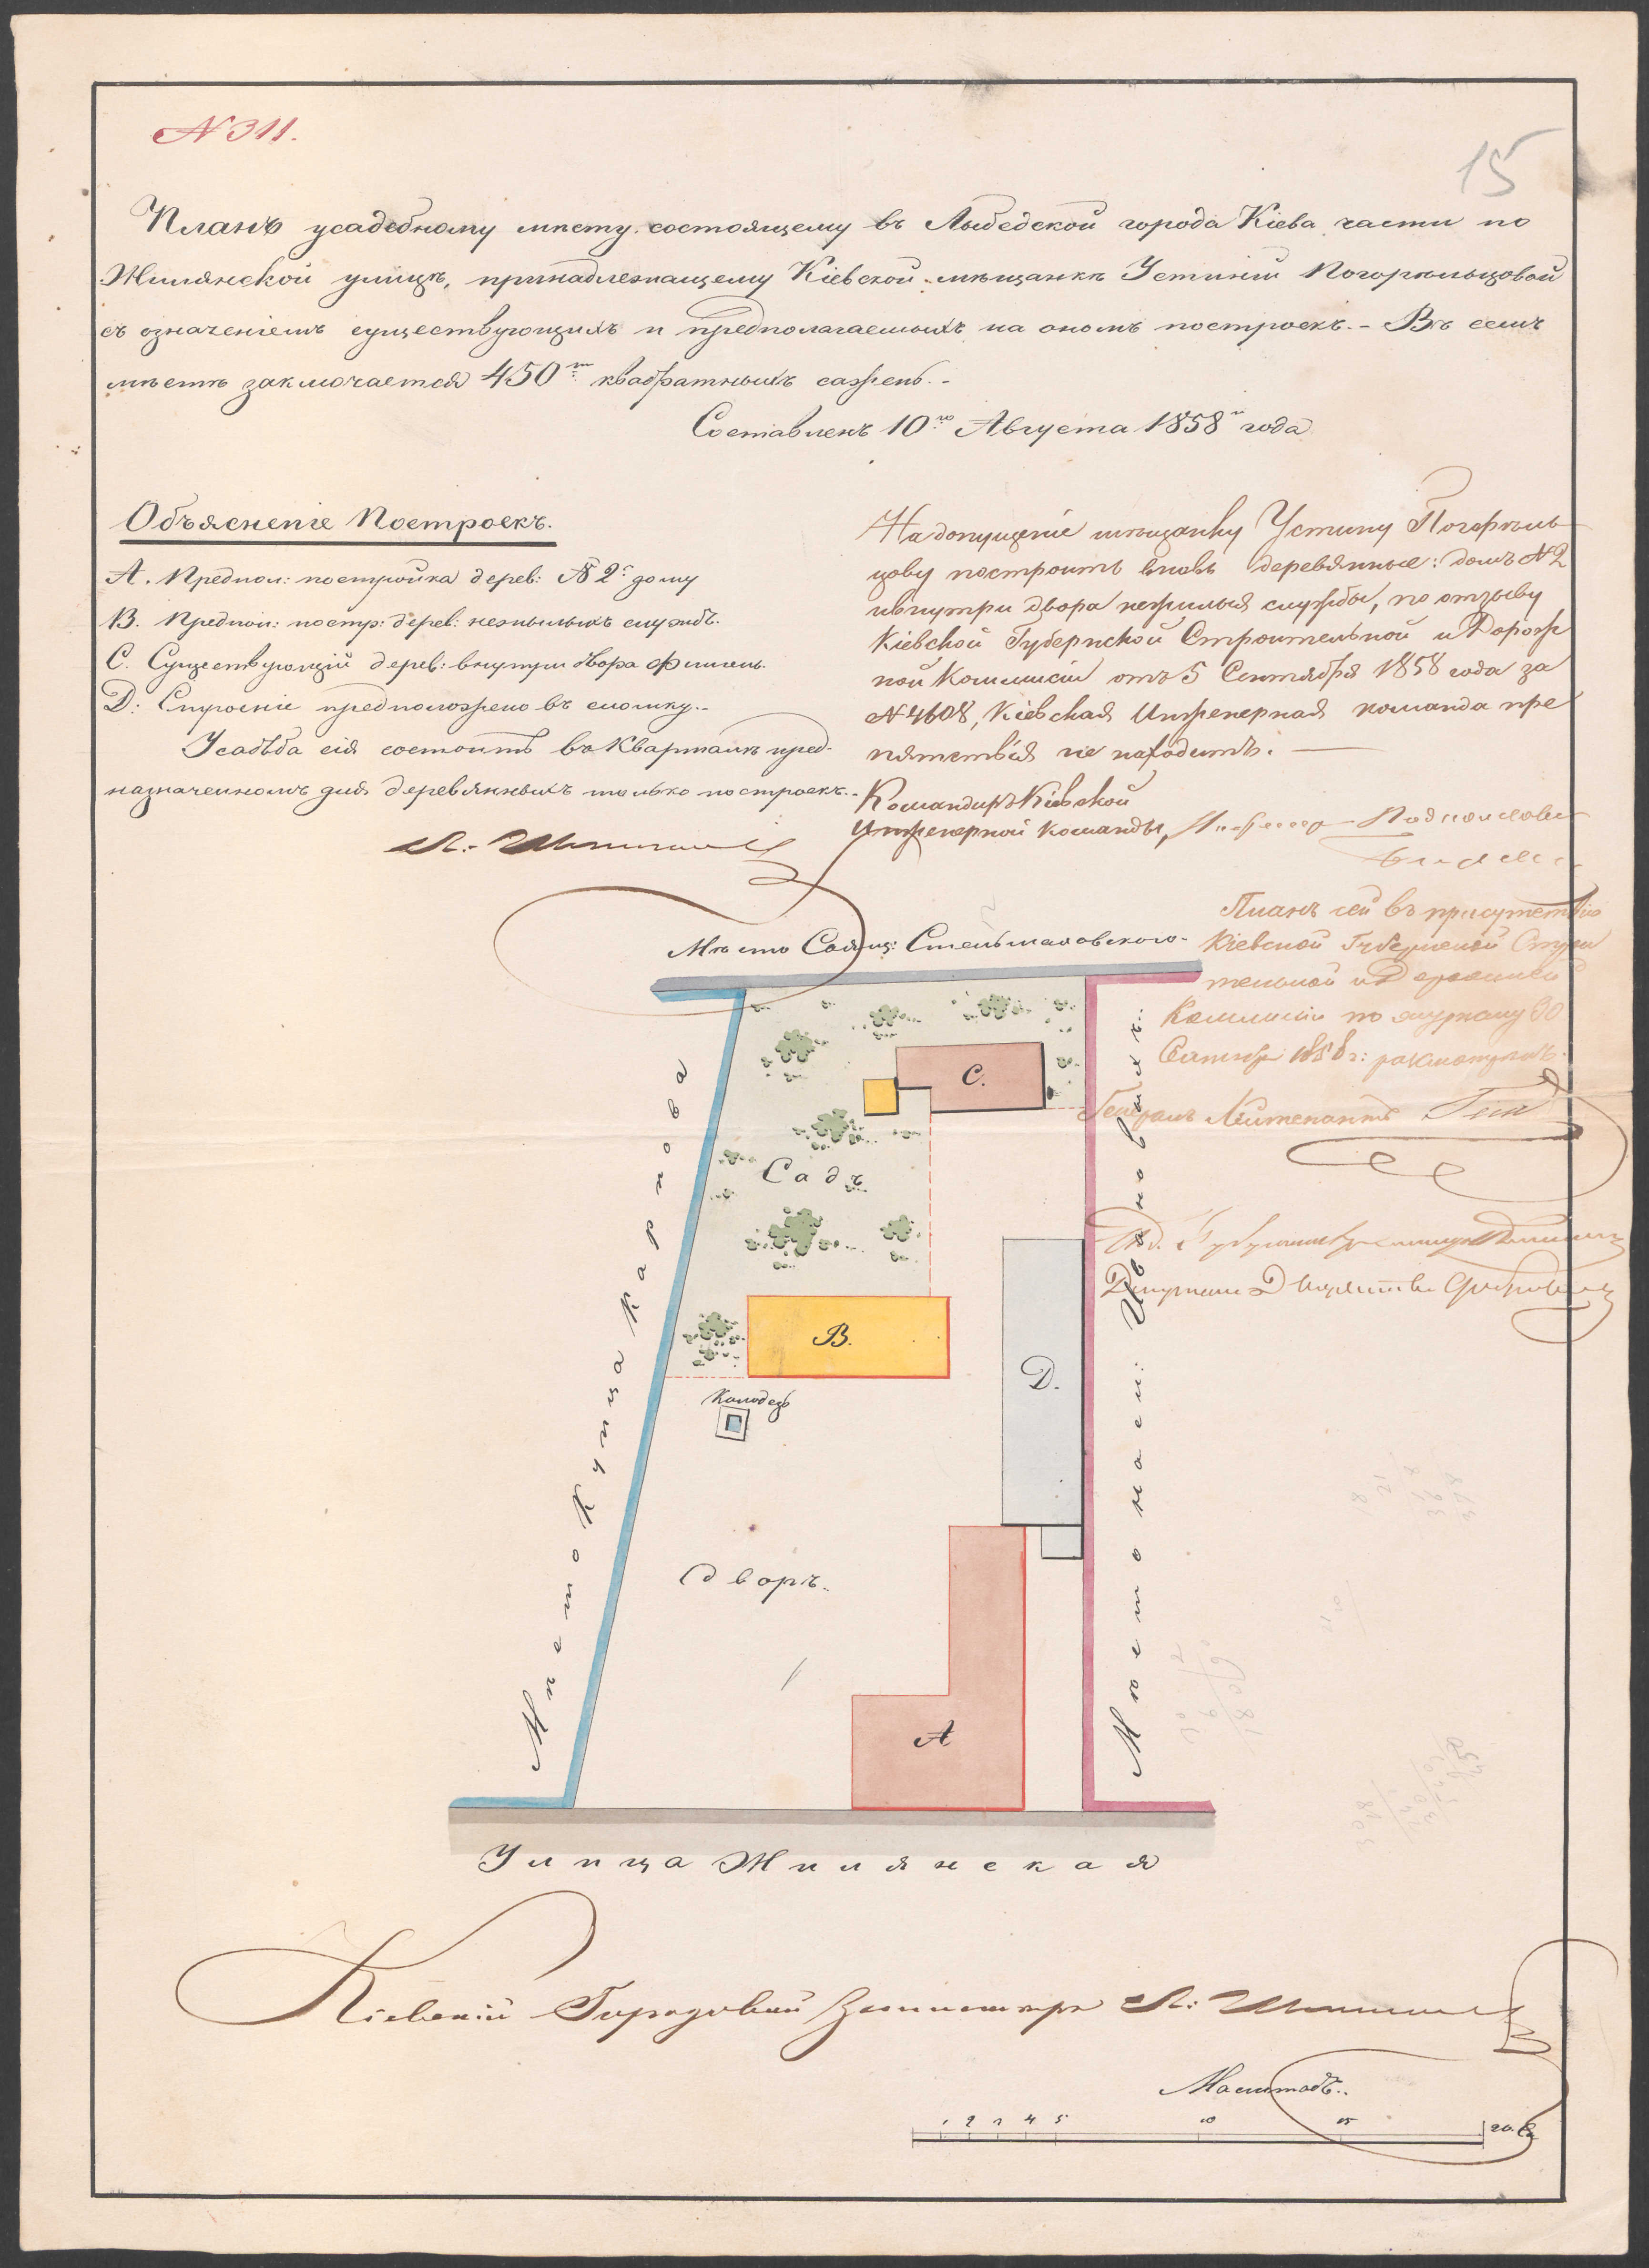 N 311.
15
Планъ усадебному мѣсту, состоящему въ Лыбедской города Кіева части по
Жилянской улицѣ, принадлежащему Кіевской мѣщанкѣ Устиніи Погорѣльцовой
съ означеніемъ существующихъ и предполагаемыхъ на ономъ построекъ. - Въ семъ
мѣстѣ заключается 450ть квадратныхъ сажень. -
Составленъ 10го Августа 1858го года
Объясненіе Построекъ.
А. Предпол: постройка дерев: N 2й дому
В. Предпол: постр: дерев: нежилыхъ службъ.
С. Существующій дерев: внутри двора флигель.
D: Строеніе предположено въ сломку. -
Усадьба сія состоитъ въ Кварталѣ пред-
назначенномъ для деревянныхъ только построекъ. -
На допущеніе мѣщанку Устину Погорѣль
цову построить вновь деревянные: домъ N 2
и внутри двора нежилыя службы, по отзыву
Кіевской Губернской Строительной и Дорож
ной Коммисіи отъ 5 Сентября 1858 года за
N 4608, Кіевская Инженерная команда пре
пятствія не находитъ.
Командиръ Кіевской
Инженерной команды, Инженер-Подполковн
Мѣсто Солдац: Стельмаховскаго -
Планъ сей въ присутствіи
Кіевской Губернской Строи
тельной и Дорожной
Коммисіи по журналу 30
Сентяб 1858 г: разсмотренъ.
Генералъ Лейтенантъ
С.
Садъ
В.
D.
Колодезь
Дворъ.
А
Мѣсто Купца Карпова
Мѣсто насл:
Улица Жилянская
Кіевскій Городовой Землемѣръ
Масштабъ.
1 2 3 4 5 10 15 20. С.